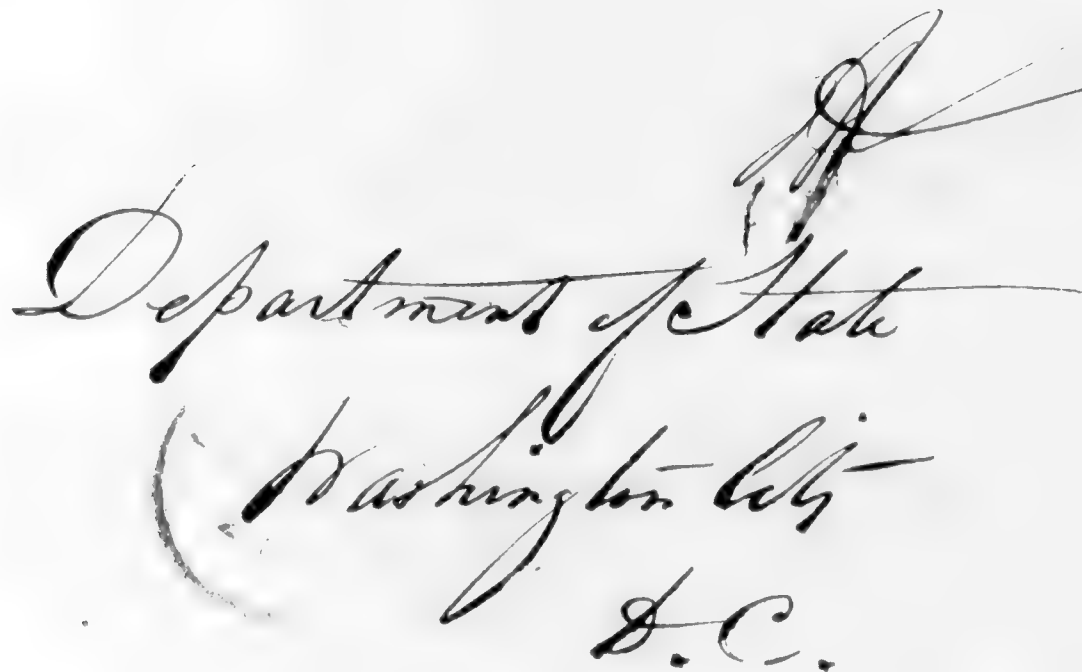 Department of State
Washington City
D. C.